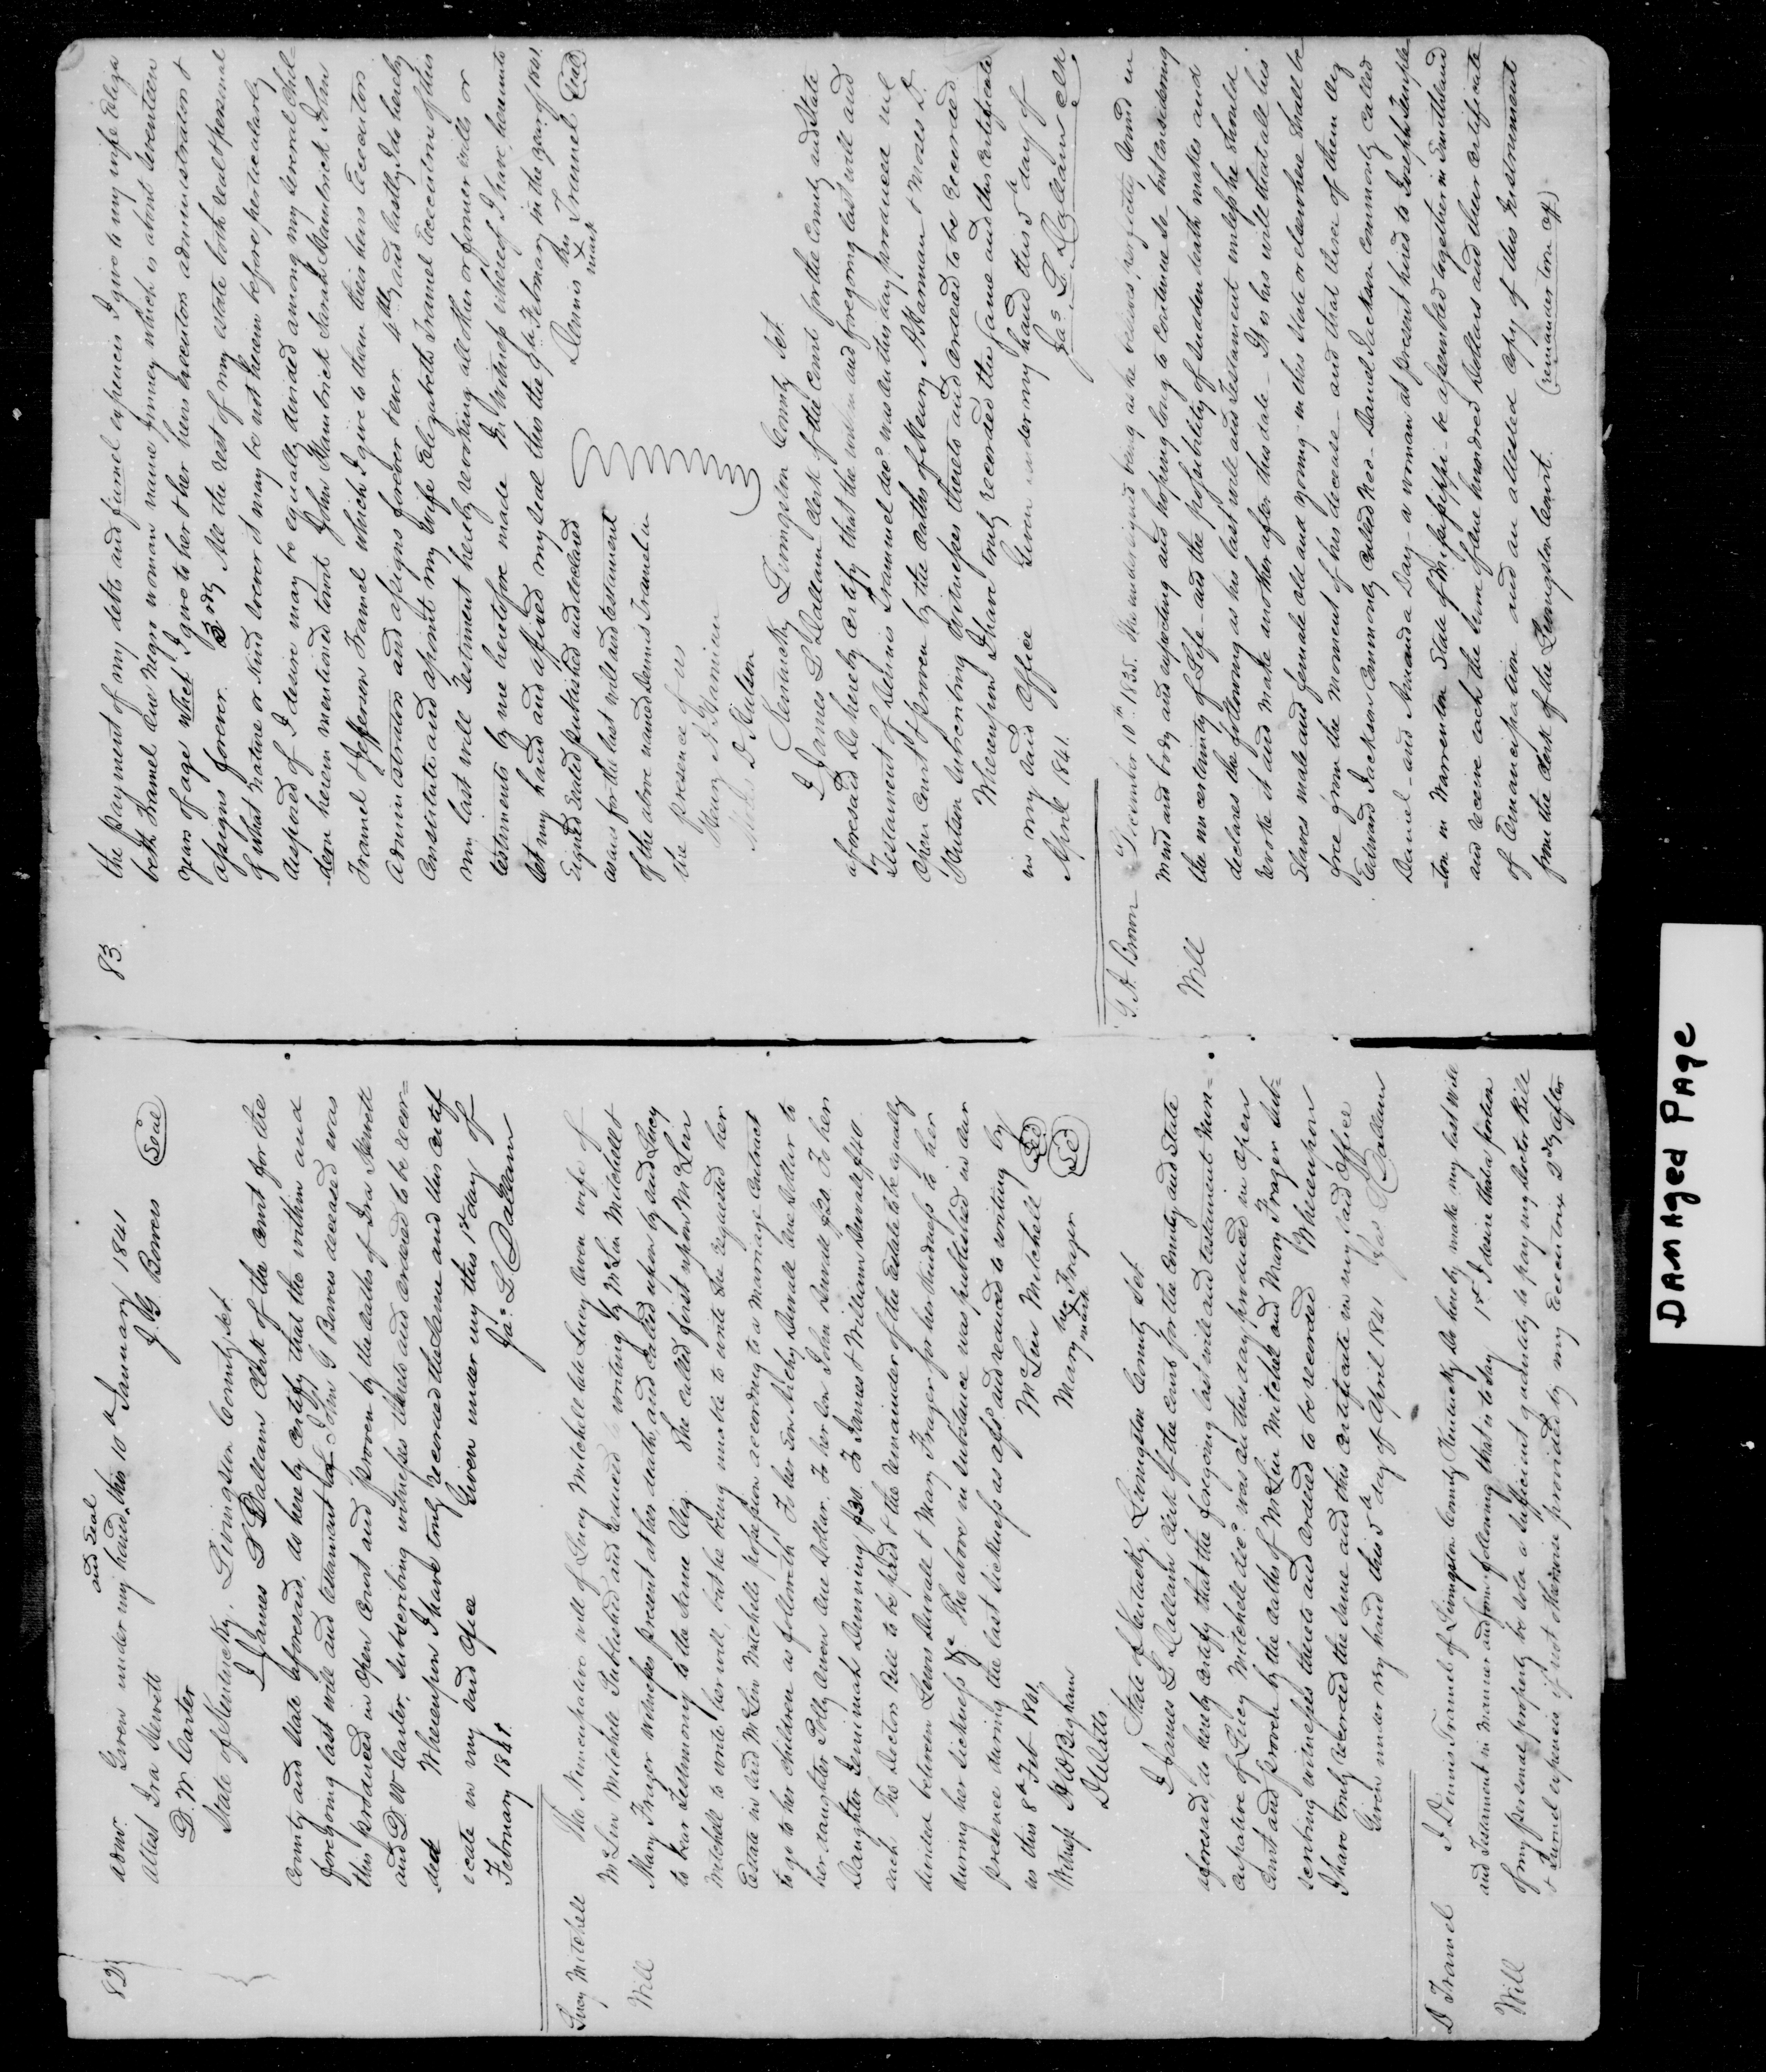 82
and Seal
admr. Given under my hand this 10th January 1841
Attest Ira Hewett J. G. Bowers Seal
D. W. Carter
State of Kentucky, Livingston County Sct.
I James L Dallam Clerk of the Court for the
County and State aforesaid, do here by Certify that the within and
foregoing last will and testament of John G Bowers deceased was
this produced in Open Court and proven by the oaths of Ira Hewett
and D. W Carter, Subscribing witnesses thereto and ordered to be recor=
ded Whereupon I have truly recorded the same and this certif
icate in my said office Given under my this 1st day of
February 1841. Jas. L. Dallam
Lucy Mitchell The Nuncupative will of Lucy Mitchell late Lucy Owen wife of
Will McLin Mitchell Published and reduced to writing by McLin Mitchell &
Mary Frazer witnesses present at her death, and called upon by said Lucy
to bear Testimony to the same Viz. She called first upon McLin
Mitchell to write her will, but he being unable to write She requested her
Estate in said McLin Mitchells possession according to a marriage Contract
to go to her children as followeth To her Son Duvall one dollar to
her daughter Polly Owens one Dollar, To her Son John Duvall $20. To her
Daughter Jemimah Dunning $30. To James & William Duvall $40
each The Doctor Bill to be paid & the remainder of the Estate to be equally
divided between Lewis Duvall & Mary Frazer for her kindness to her
during her sickness &c The above in substance was published in our
presence during the last sickness as affd and reduced to writing by
us this 8th Feb 1841 McLin Mitchell Sel
Witness H W Bigham Mary her mark Frazer Sel
D Watts
State of Kentucky, Livingston County Sct
I James L Dallam Clerk of the court for the County and State
aforesaid, do hereby certify that the foregoing last will and testament Nun=
cupative of Lucy Mitchell decd. was on this day produced in open
Court and proven by the oaths of McLin Mitchell and Mary Frazer Sub=
scribing witnesses thereto and ordered to be recorded Whereupon
I have truly recorded the same and this certificate in my said office
Given under my hand this 5th day of April 1841 Jas L Dallam
D Tramel I Dennis Tramel of Livingston County Kentucky do hereby make my last Will
and Testament in manner and form following that is to Say 1st I desire that a portion
Will of my personal property be sold a Sufficient quantity to pay my doctor Bill
& Furnel expencis if not otherwise provided by my Executrix 2dly after
83.
the payment of my debts and furnel expencis I give to my wife Eliza
beth Tramel one Negro woman name Jinney which is about Seventeen
years of age which I give to her & her heirs executors administrators &
assigns forever. 3rdly All the rest of my estate both real & personal
of what Nature or Kind soever it may be not herein before perticularly
disposed of I desire may be equally devided among my several Chil-
-dern herein mentioned towit John Hamtrick Sarah Hamtrick John
Tramel & Jefferson Tramel which I give to them their heirs Executors
Administrators and assigns forever 4thly and lastly I do hereby
Constitute and apoint my wife Elizabeth Tramel Executrix of this
my last will & Testment hereby revorking all other or former wills or
testaments by me heretofore made In Witness whereof I have hereunto
Set my hand and afixed my seal this the 9th Febuary in the year of 1841.
Signed Sealed published and declared Dennis his X mark Tramel Seal
as for the last will and testament
of the above named Dennis Tramel in
the presence of us
Henry N Harman
Moses D. Dutson
Kentucky Livingston County Sct
I James L Dallam Clerk of the Court for the County and State
aforesaid do hereby Certify that the within and foregoing last will and
testament of Dennis Trammel decd. was on this day produced in
Open Court & proven by the oaths of Henry N Harman & Moses D.
Dutson Subscribing witnesses thereto and ordered to be recorded
Whereupon I have truly recorded the same and this certificate
in my said Office Given under my hand this 5th day of
April 1841. Jas L Dallam Clk
T. A. Brown December 10th 1835. The undersigned being as he believes, perfectly sound in
mind and body and expecting and hoping long to Continue so but considering
Will the uncertainty of Life and the possibility of sudden death makes and
declares the following as his last will and testament unless he should
revoke it and make another after this date - It is his will that all his
Slaves male and female old and young in this State or elsewhere Shall be
free from the moment of his decease - and that three of them Viz
Edward Jackson Commonly called Ned - Daniel Jackson Commonly Called
Daniel - and Amanda Day - a woman at present hired to Joseph Temple
-ton in Warrenton State of Missippi - be assembled together in Smithland
and receive each the Sum of one hundred Dollars and their certificate
of Emancipation and an attested copy of this Instrument
from the Clerk of the Livingston Court. (remainder ton of)
DAMAged PAge